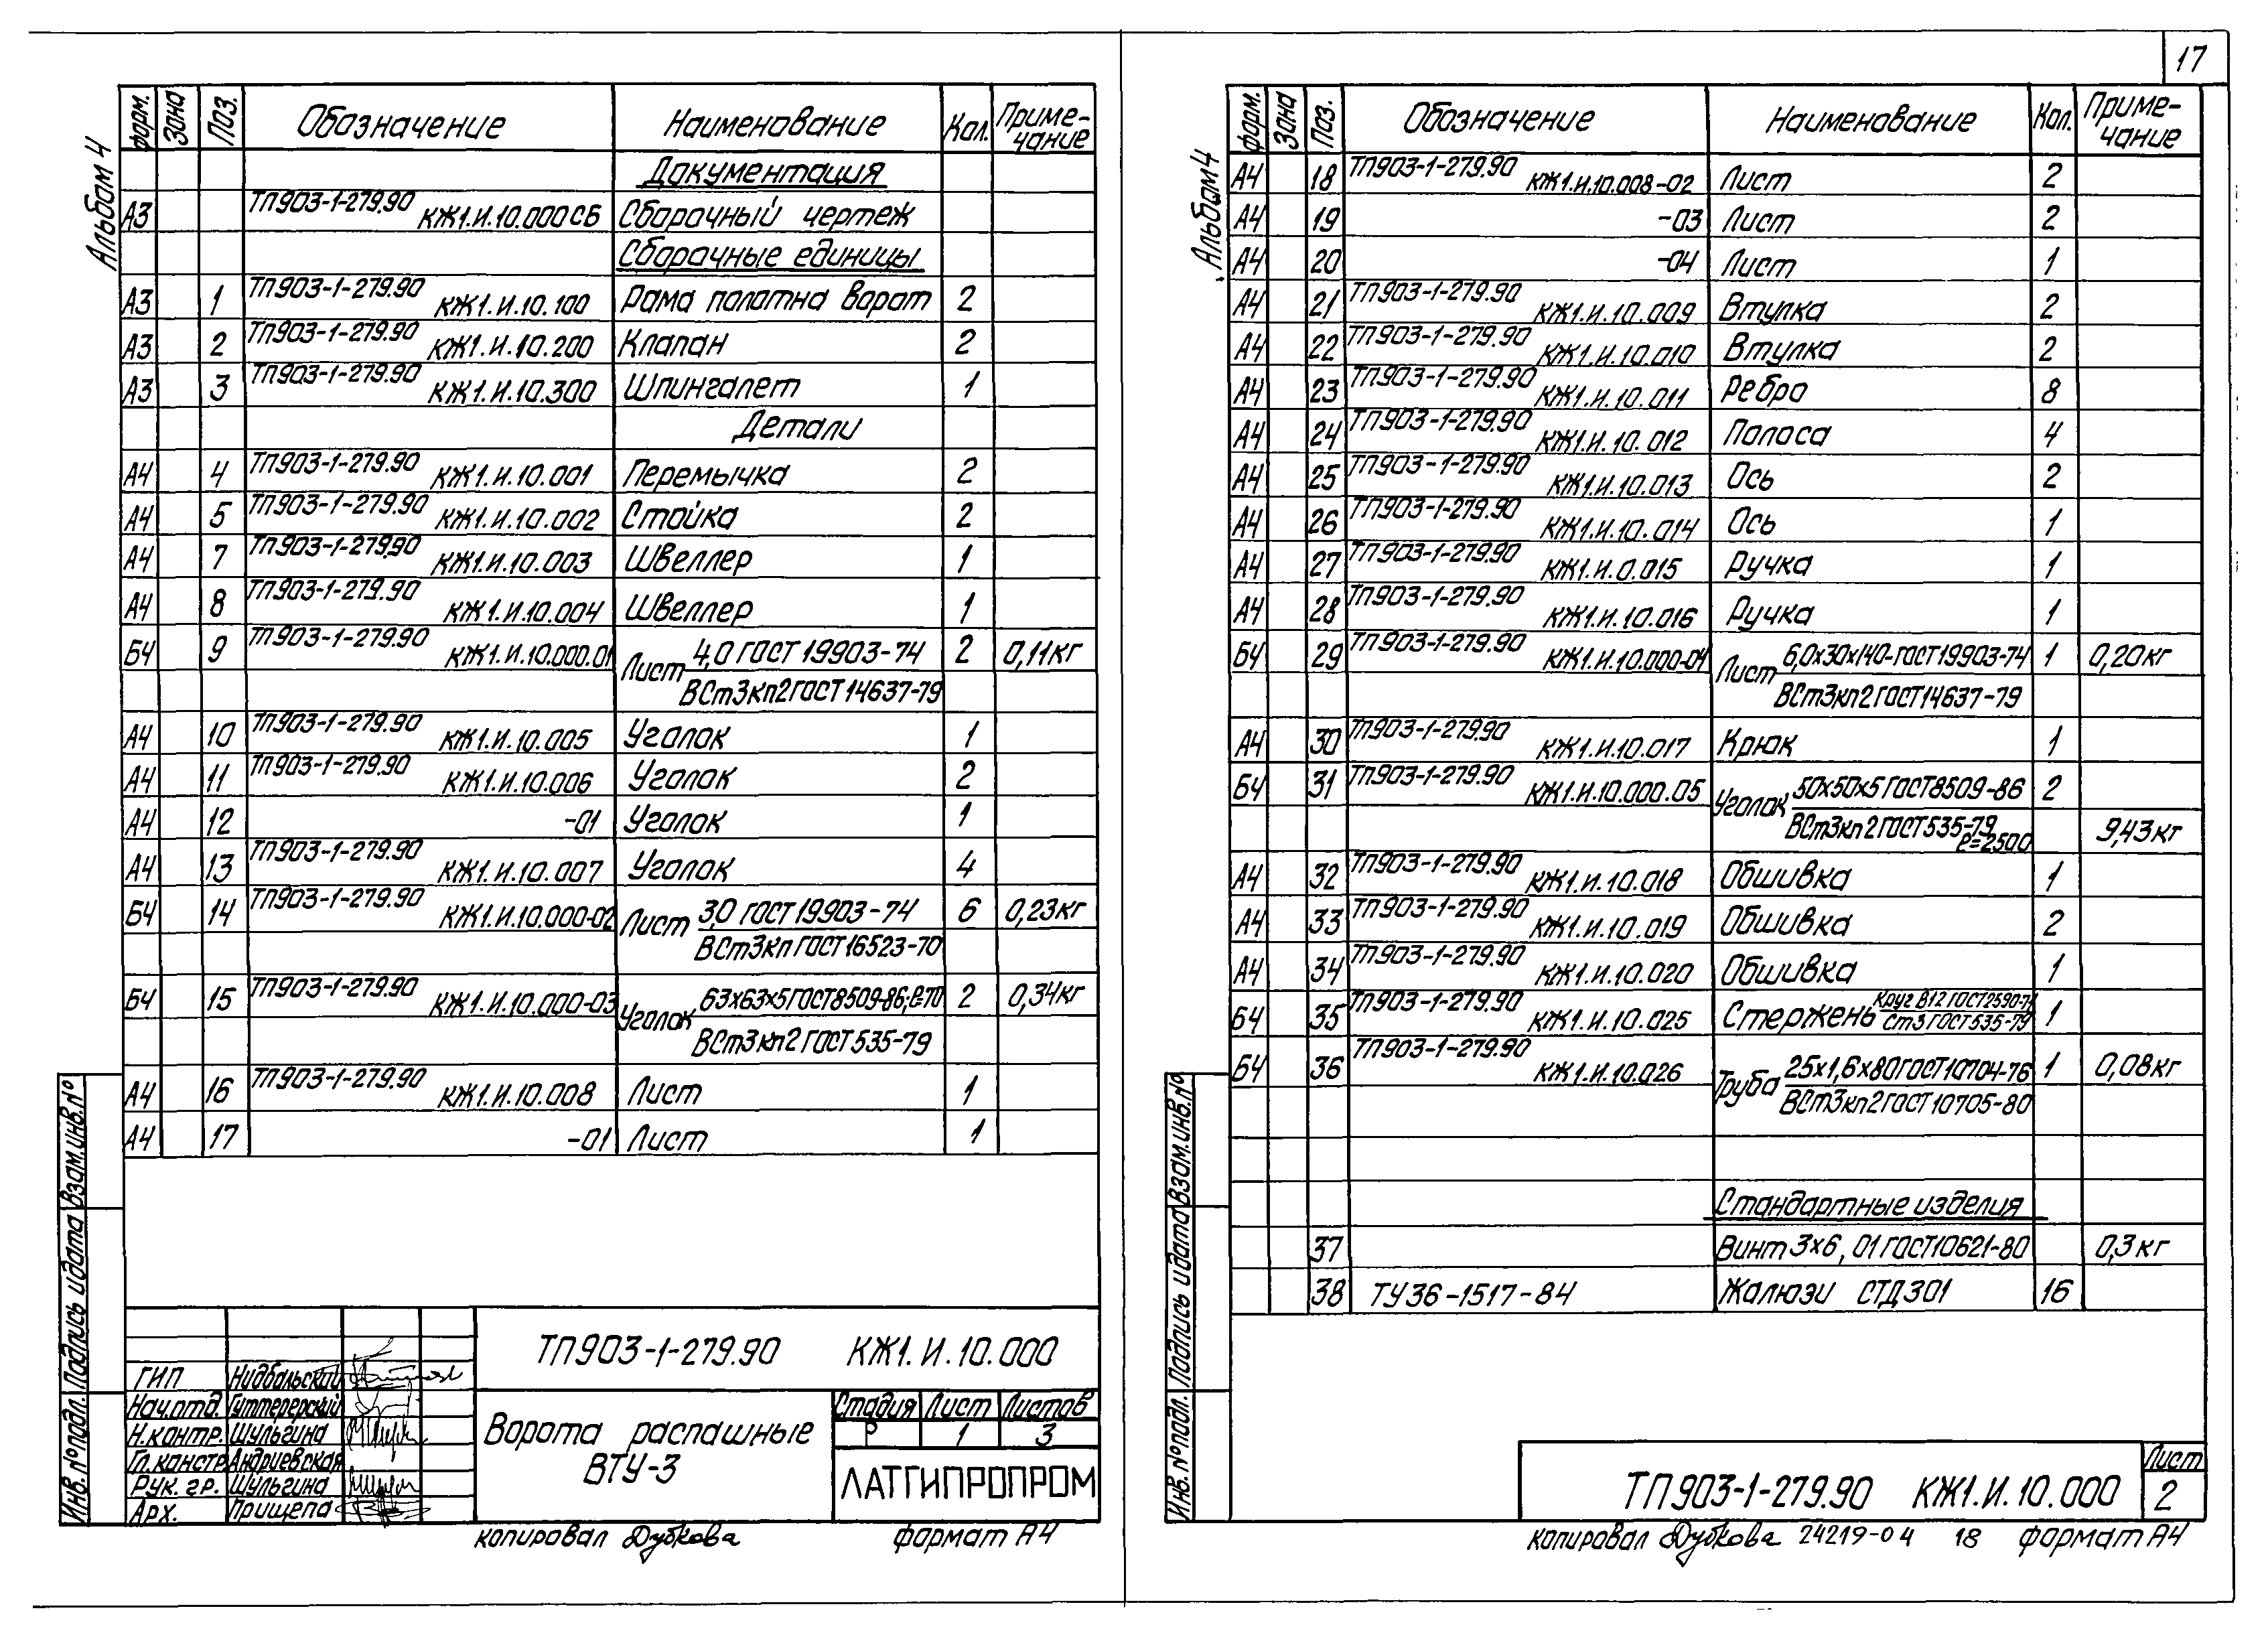 17
Альбом 4
Форм. Зона Поз. Обозначение Наименование Кол. Приме-чание
Документация
А3 ТП903-1-279.90 КЖ1.И.10.000СБ Сборочный чертеж
Сборочные единицы
А3 1 ТП903-1-279.90 КЖ1.И.10.100 Рама полотна ворот 2
А3 2 ТП903-1-279.90 КЖ1.И.10.200 Клапан 2
А3 3 ТП903-1-279.90 КЖ1.И.10.300 Шпингалет 1
Детали
А4 4 ТП903-1-279.90 КЖ1.И.10.001 Перемычка 2
А4 5 ТП903-1-279.90 КЖ1.И.10.002 Стойка 2
А4 7 ТП903-1-279.90 КЖ1.И.10.003 Швеллер 1
А4 8 ТП903-1-279.90 КЖ1.И.10.004 Швеллер 1
БЧ 9 ТП903-1-279.90 КЖ1.И.10.000.01 Лист 4,0 ГОСТ 19903-74 2 0,11кг
ВСт3кп2ГОСТ14637-79
А4 10 ТП903-1-279.90 КЖ1.И.10.005 Уголок 1
А4 11 ТП903-1-279.90 КЖ1.И.10.006 Уголок 2
А4 12 -01 Уголок 1
А4 13 ТП903-1-279.90 КЖ1.И.10.007 Уголок 4
БЧ 14 ТП903-1-279.90 КЖ1.И.10.000-02 Лист 3,0 ГОСТ 19903-74 6 0,23кг
ВСт3кп ГОСТ 16523-70
БЧ 15 ТП903-1-279.90 КЖ1.И.10.000-03 Уголок 63х63х5ГОСТ8509-86; ℓ=70 2 0,34кг
ВСт3кп2 ГОСТ 535-79
А4 16 ТП903-1-279.90 КЖ1.И.10.008 Лист 1
А4 17 -01 Лист 1
Инв.№подл. Подпись и дата Взам.инв.№
ТП903-1-279.90 КЖ1.И.10.000
ГИП Нидбальский
Нач.отд. Гуттерерский
Н.контр. Шульгина
Гл.констр Андриевская
Рук. гр. Шульгина
Арх. Прищепа
Ворота распашные
ВТУ-3
Стадия Лист Листов
Р 1 3
ЛАТГИПРОПРОМ
копировал Дубкова формат А4
Альбом 4
Форм. Зона Поз. Обозначение Наименование Кол. Приме-чание
А4 18 ТП903-1-279.90 КЖ1.И.10.008-02 Лист 2
А4 19 -03 Лист 2
А4 20 -04 Лист 1
А4 21 ТП903-1-279.90 КЖ1.И.10.009 Втулка 2
А4 22 ТП903-1-279.90 КЖ1.И.10.010 Втулка 2
А4 23 ТП903-1-279.90 КЖ1.И.10.011 Ребро 8
А4 24 ТП903-1-279.90 КЖ1.И.10.012 Полоса 4
А4 25 ТП903-1-279.90 КЖ1.И.10.013 Ось 2
А4 26 ТП903-1-279.90 КЖ1.И.10.014 Ось 1
А4 27 ТП903-1-279.90 КЖ1.И.0.015 Ручка 1
А4 28 ТП903-1-279.90 КЖ1.И.10.016 Ручка 1
БЧ 29 ТП903-1-279.90 КЖ1.И.10.000-04 Лист 6,0х30х140-ГОСТ19903-74 1 0,20кг
ВСт3кп2ГОСТ14637-79
А4 30 ТП903-1-279.90 КЖ1.И.10.017 Крюк 1
БЧ 31 ТП903-1-279.90 КЖ1.И.10.000.05 Уголок 50х50х5ГОСТ8509-86 2
ВСт3кп2ГОСТ535-79 ℓ=2500 9,43кг
А4 32 ТП903-1-279.90 КЖ1.И.10.018 Обшивка 1
А4 33 ТП903-1-279.90 КЖ1.И.10.019 Обшивка 2
А4 34 ТП903-1-279.90 КЖ1.И.10.020 Обшивка 1
БЧ 35 ТП903-1-279.90 КЖ1.И.10.025 Стержень Круг В12 ГОСТ2590-71 Ст3 ГОСТ535-79 1
БЧ 36 ТП903-1-279.90 КЖ1.И.10.026 Труба 25х1,6х80ГОСТ10704-76 1 0,08кг
ВСт3кп2ГОСТ10705-80
Стандартные изделия
37 Винт 3х6, 01 ГОСТ10621-80 0,3кг
38 ТУ36-1517-84 Жалюзи СТД301 16
Инв.№подл. Подпись и дата Взам.инв.№
ТП903-1-279.90 КЖ1.И.10.000
Лист
2
копировал Дубкова 24219-04 18 формат А4